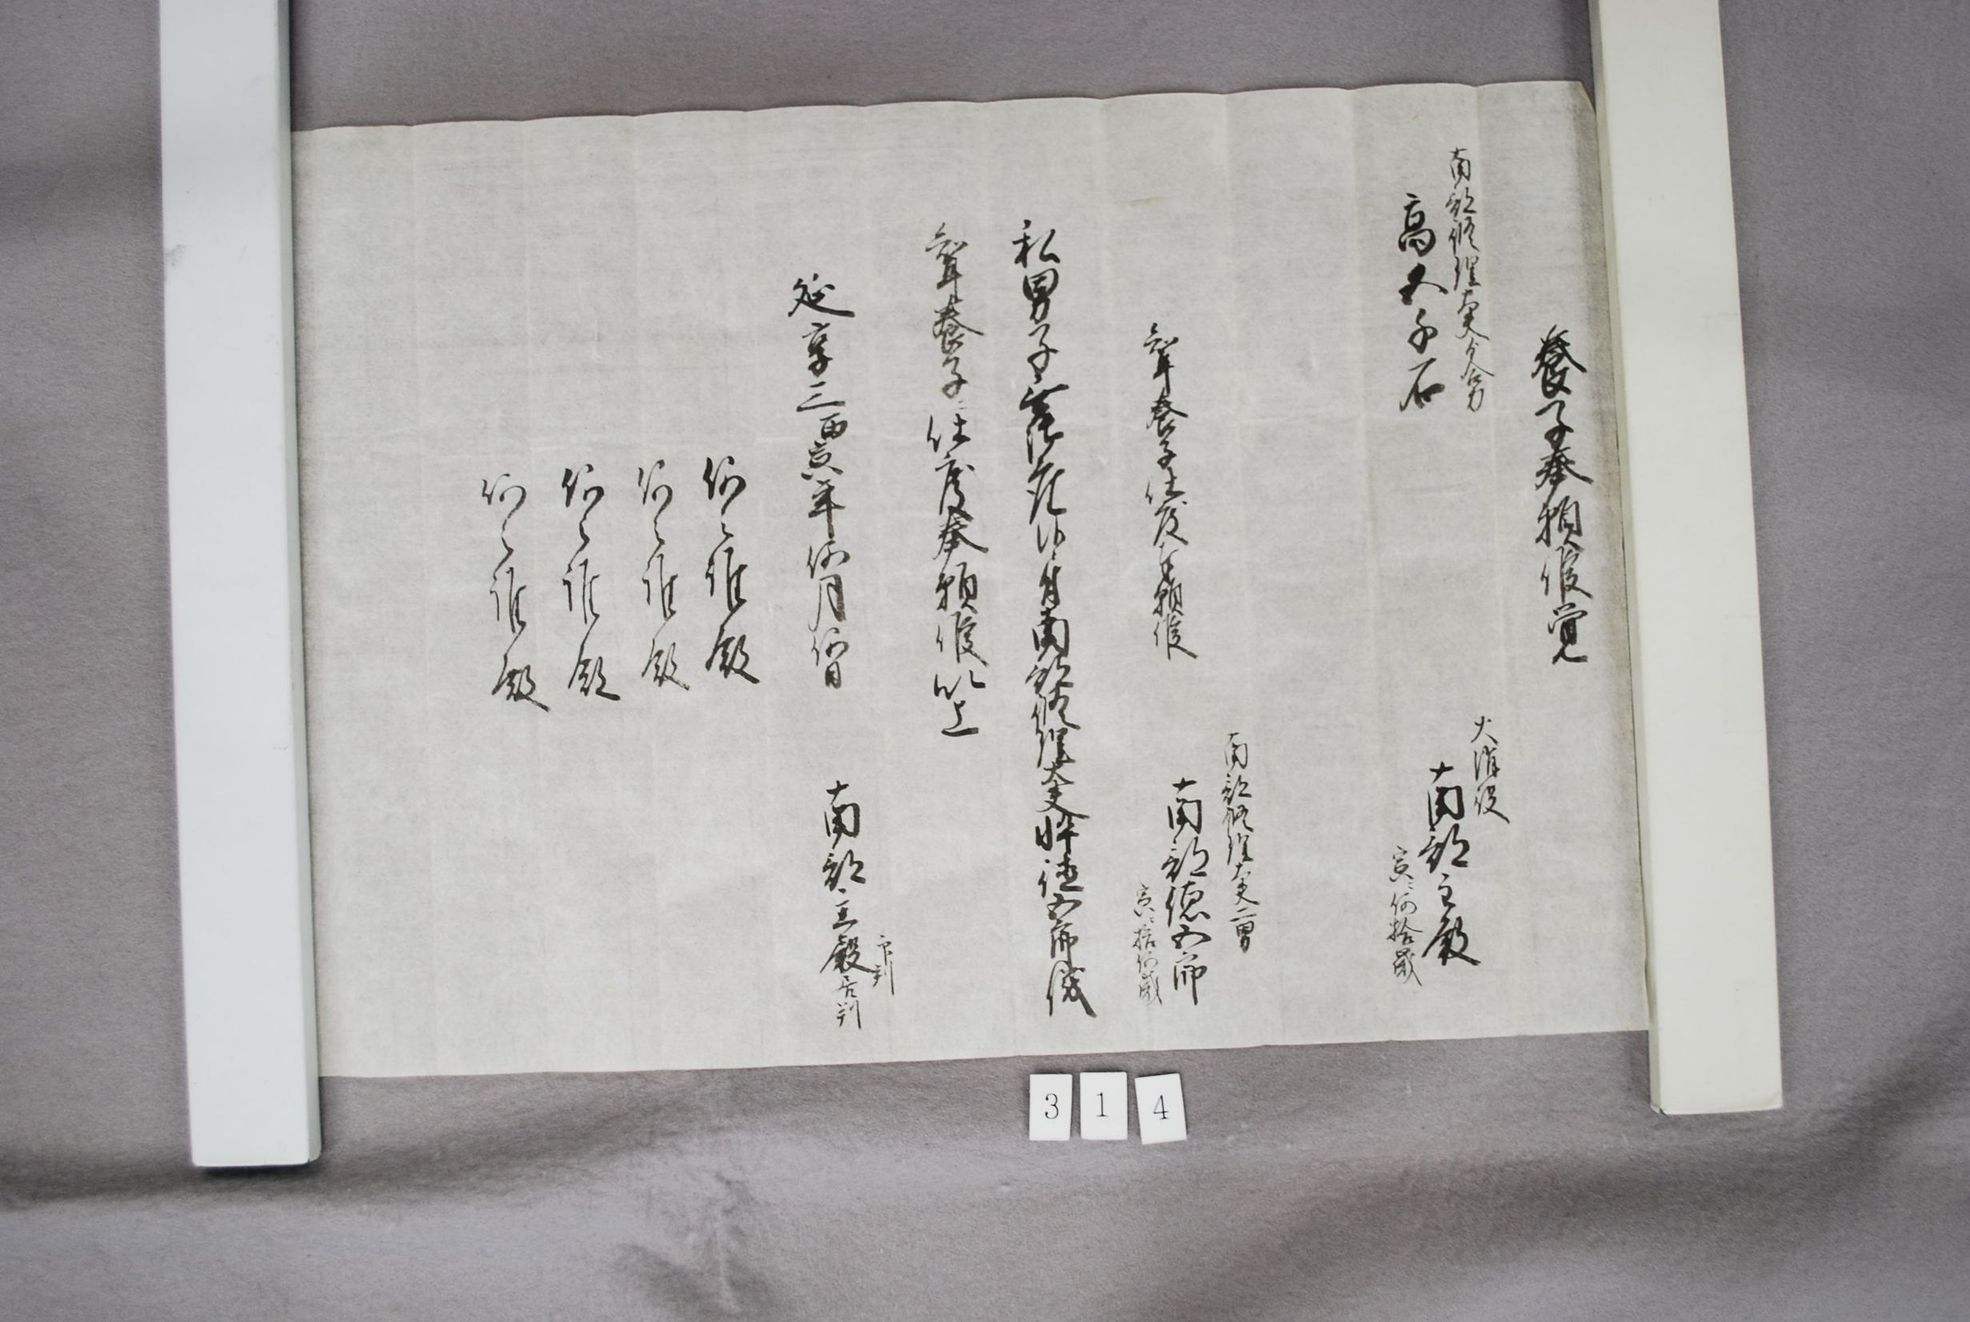 養子奉願候覚
南部修理大夫分合力
高五千石
火消役
南部主殿
寅ニ何拾歳
聟養子仕度奉願候
南部修理大夫二男
南部徳五郎
寅ニ拾何歳
私男子無御座候ニ付南部修理大夫忰徳五郎儀
聟養子仕度奉願候以上
延享三丙寅年何月何日
南部主殿
印判
居判
何之誰殿
何之誰殿
何之誰殿
何之誰殿
314